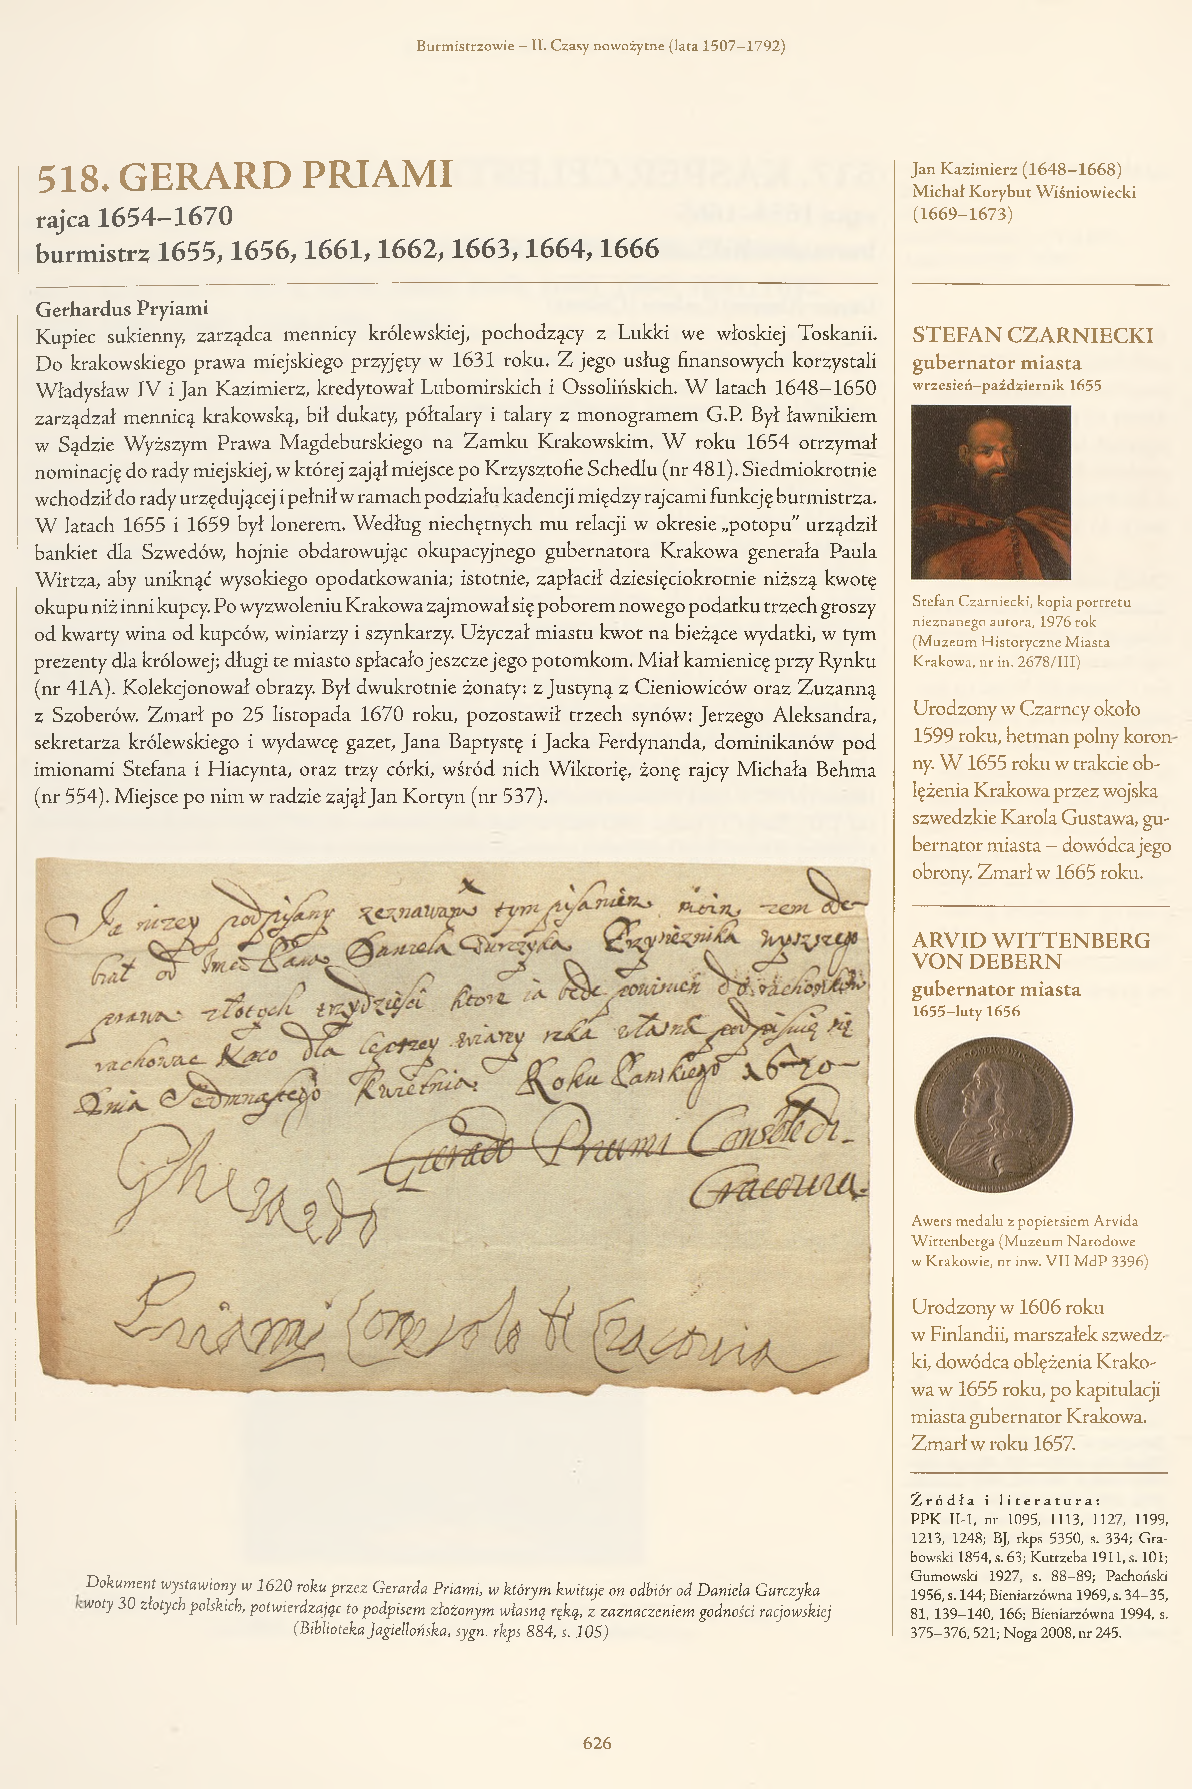 Burmistrzowie – II. Czasy nowożytne (lata 1507–1792)
518. GERARD PRIAMI
rajca 1654–1670
burmistrz 1655, 1656, 1661, 1662, 1663, 1664, 1666
Gerhardus Pryiami
Kupiec sukienny, zarządca mennicy królewskiej, pochodzący z Lukki we włoskiej Toskanii.
Do krakowskiego prawa miejskiego przyjęty w 1631 roku. Z jego usług finansowych korzystali
Władysław IV i Jan Kazimierz, kredytował Lubomirskich i Ossolińskich. W latach 1648–1650
zarządzał mennicą krakowską, bił dukaty, półtalary i talary z monogramem G.P. Był ławnikiem
w Sądzie Wyższym Prawa Magdeburskiego na Zamku Krakowskim. W roku 1654 otrzymał
nominację do rady miejskiej, w której zajął miejsce po Krzysztofie Schedlu (nr 481). Siedmiokrotnie
wchodził do rady urzędującej i pełnił w ramach podziału kadencji między rajcami funkcję burmistrza.
W latach 1655 i 1659 był lonerem. Według niechętnych mu relacji w okresie „potopu” urządził
bankiet dla Szwedów, hojnie obdarowując okupacyjnego gubernatora Krakowa generała Paula
Wirtza, aby uniknąć wysokiego opodatkowania; istotnie, zapłacił dziesięciokrotnie niższą kwotę
okupu niż inni kupcy. Po wyzwoleniu Krakowa zajmował się poborem nowego podatku trzech groszy
od kwarty wina od kupców, winiarzy i szynkarzy. Użyczał miastu kwot na bieżące wydatki, w tym
prezenty dla królowej; długi te miasto spłacało jeszcze jego potomkom. Miał kamienicę przy Rynku
(nr 41A). Kolekcjonował obrazy. Był dwukrotnie żonaty: z Justyną z Cieniowiców oraz Zuzanną
z Szoberów. Zmarł po 25 listopada 1670 roku, pozostawił trzech synów: Jerzego Aleksandra,
sekretarza królewskiego i wydawcę gazet, Jana Baptystę i Jacka Ferdynanda, dominikanów pod
imionami Stefana i Hiacynta, oraz trzy córki, wśród nich Wiktorię, żonę rajcy Michała Behma
(nr 554). Miejsce po nim w radzie zajął Jan Kortyn (nr 537).
Ja nizey podpisany zeznawam tym pisaniem moim zem ode-
brał od Jmci Pana Daniela Gurczyka Przysieznika wyszszego
prawa złotych trzydziesci ktore ia bede powinien do rachonkow
rachowac Kaco dla lepszey wiary reka własna podpisuię się
Dnia Siedmnastego Kwietnia Roku Panskiego 1670
Gierado Priami Console di
Cracouia
Gherado
Priami Consolo di Cracouia
Dokument wystawiony w 1620 roku przez Gerarda Priami, w którym kwituje on odbiór od Daniela Gurczyka
kwoty 30 złotych polskich, potwierdzając to podpisem złożonym własną ręką, z zaznaczeniem godności racjowskiej
(Biblioteka Jagiellońska, sygn. rkps 884, s. 105)
Jan Kazimierz (1648–1668)
Michał Korybut Wiśniowiecki
(1669–1673)
STEFAN CZARNIECKI
gubernator miasta
wrzesień–październik 1655
Stefan Czarniecki, kopia portretu
nieznanego autora, 1976 rok
(Muzeum Historyczne Miasta
Krakowa, nr in. 2678/III)
Urodzony w Czarncy około
1599 roku, hetman polny koron-
ny. W 1655 roku w trakcie ob-
lężenia Krakowa przez wojska
szwedzkie Karola Gustawa, gu-
bernator miasta – dowódca jego
obrony. Zmarł w 1665 roku.
ARVID WITTENBERG
VON DEBERN
gubernator miasta
1655–luty 1656
Awers medalu z popiersiem Arvida
Wittenberga (Muzeum Narodowe
w Krakowie, nr inw. VII MdP 3396)
Urodzony w 1606 roku
w Finlandii, marszałek szwedz-
ki, dowódca oblężenia Krako-
wa w 1655 roku, po kapitulacji
miasta gubernator Krakowa.
Zmarł w roku 1657.
Źródła i literatura:
PPK II-1, nr 1095, 1113, 1127, 1199,
1213, 1248; BJ, rkps 5350, s. 334; Gra-
bowski 1854, s. 63; Kutrzeba 1911, s. 101;
Gumowski 1927, s. 88–89; Pachoński
1956, s. 144; Bieniarzówna 1969, s. 34–35,
81, 139–140, 166; Bieniarzówna 1994, s.
375–376, 521; Noga 2008, nr 245.
626